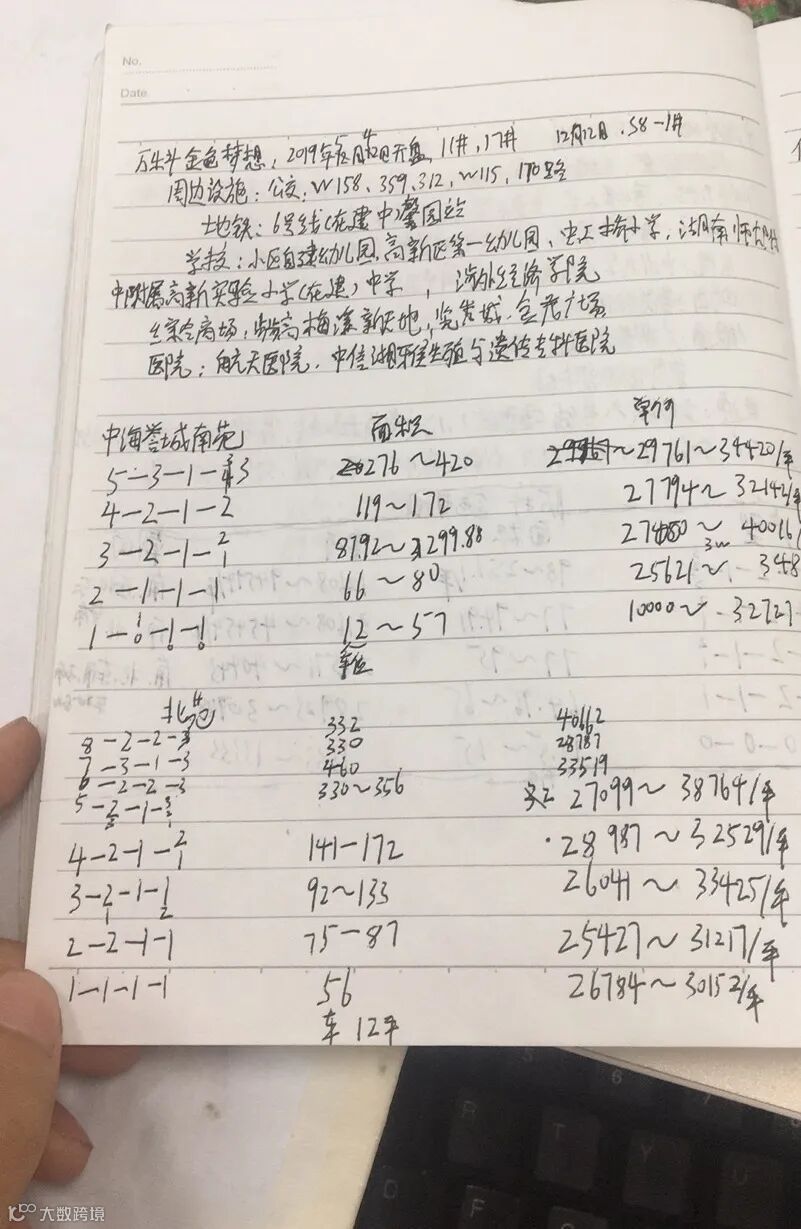 No.
Date
万科金色梦想：2019年 开盘，11#，17# 12月12日 .S8-1#
周边设施：公交：W158、359、312、W115、170路
地铁：6号线(在建中)馨园站
学校：小区自建幼儿园，高新区第一幼儿园、虫工桥小学，湖南师大附
中附属高新实验小学(在建)中学，涉外经济学院
综合商场：步步高梅溪新天地，奥克斯.金 广场
医院：航天医院．中信湘雅生殖与遗传专科医院
中海誉城南苑 面积 单价
5-3-1-3 276～420 29761～34420/平
4-2-1-2 119～172 27794～32142/平
3-2-1-2/1 87.92～299.88 27480～40016/
3w
2-1-1-1 66～80 25621～348
1-1/0-1/0-1/0 12～57 10000～32727
车位
北苑
8-2-2-3 332 40662
7-3-1-3 330 28787
6-2-2-3 460 33519
5-2/3-1-3 330～356 27099～38764/平
4-2-1-2/1 141-172 28987～32529/平
3-2/1-1-1/2 92～133 26041～33425/平
2-2-1-1 75-87 25427～31217/平
1-1-1-1 56 26784～30152/平
车 12平
大数跨境